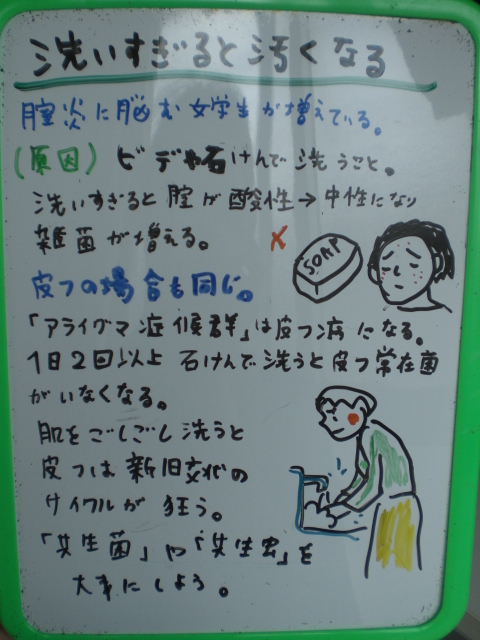 洗いすぎると汚くなる
腟炎に脳む女学生が増えている。
(原因) ビデや石けんで洗うこと。
洗いすぎると腟が酸性→中性になり
雑菌が増える。
SOAP
皮フの場合も同じ。
「アライグマ症候群」は皮フ病になる。
1日2回以上石けんで洗うと皮フ常在菌
がいなくなる。
肌をごしごし洗うと
皮フは新旧交代の
サイクルが狂う。
「共生菌」や「共生虫」を
大事にしよう。